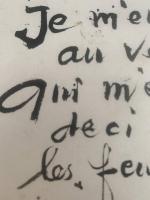 Je m'e
au v
qui m'e
deci
les feu